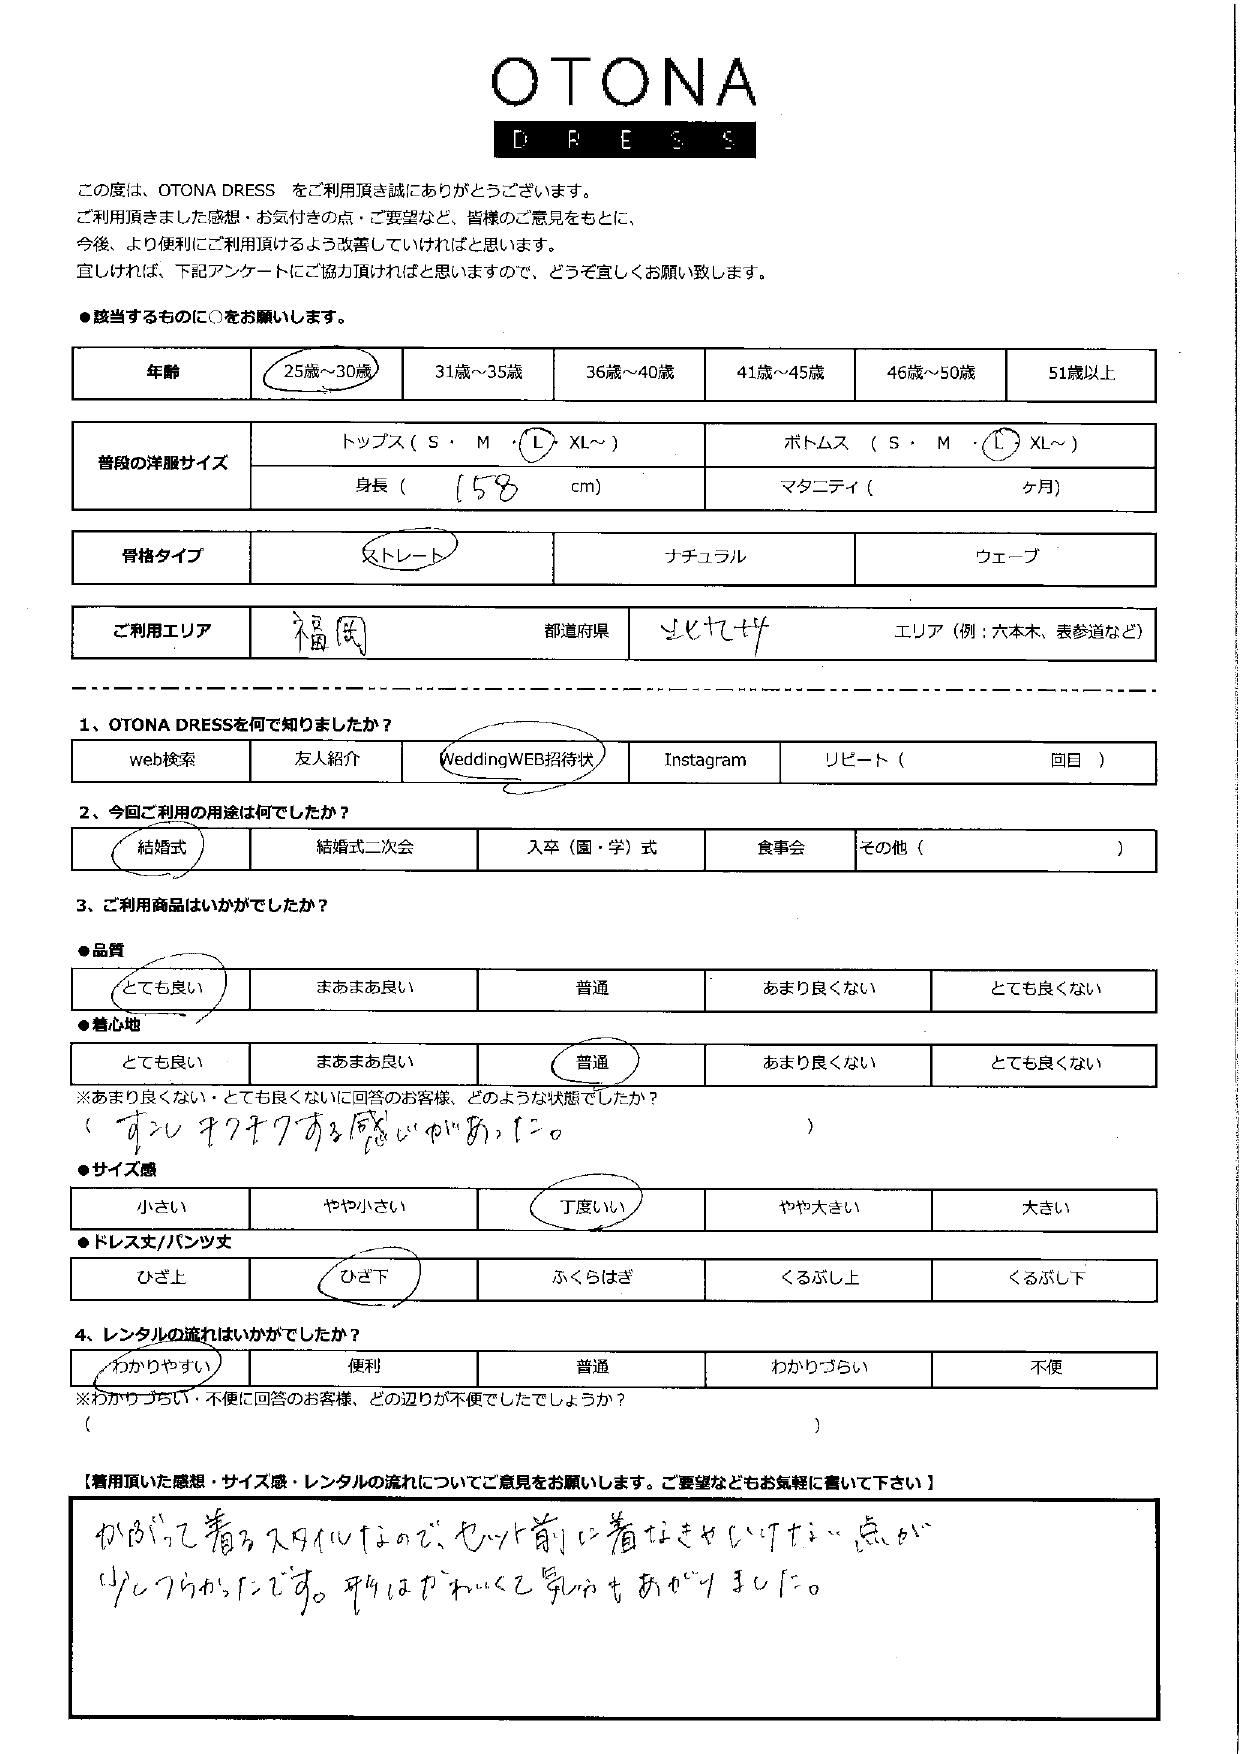 OTONA
DRESS
この度は、OTONA DRESS をご利用頂き誠にありがとうございます。
ご利用頂きました感想・お気付きの点・ご要望など、皆様のご意見をもとに、
今後、より便利にご利用頂けるよう改善していければと思います。
宜しければ、下記アンケートにご協力頂ければと思いますので、どうぞ宜しくお願い致します。
●該当するものに○をお願いします。
年齢 25歳～30歳 31歳～35歳 36歳～40歳 41歳～45歳 46歳～50歳 51歳以上
普段の洋服サイズ トップス ( S ・ M ・ L ・ XL～ ) ボトムス ( S ・ M ・ L ・ XL～ )
身長 ( 158 cm) マタニティ ( ケ月)
骨格タイプ ストレート ナチュラル ウェーブ
ご利用エリア 福岡 都道府県 北九州 エリア（例：六本木、表参道など）
1、OTONA DRESSを何で知りましたか？
web検索 友人紹介 WeddingWEB招待状 Instagram リピート ( 回目 )
2、今回ご利用の用途は何でしたか？
結婚式 結婚式二次会 入卒（園・学）式 食事会 その他 ( )
3、ご利用商品はいかがでしたか？
●品質
とても良い まあまあ良い 普通 あまり良くない とても良くない
●着心地
とても良い まあまあ良い 普通 あまり良くない とても良くない
※あまり良くない・とても良くないに回答のお客様、どのような状態でしたか？
( すこしチクチクする感じがあった。 )
●サイズ感
小さい やや小さい 丁度いい やや大きい 大きい
●ドレス丈/パンツ丈
ひざ上 ひざ下 ふくらはぎ くるぶし上 くるぶし下
4、レンタルの流れはいかがでしたか？
わかりやすい 便利 普通 わかりづらい 不便
※わかりづらい・不便に回答のお客様、どの辺りが不便でしたでしょうか？
( )
【着用頂いた感想・サイズ感・レンタルの流れについてご意見をお願いします。ご要望などもお気軽に書いて下さい】
かぶって着るスタイルなので、セット前に着なきゃいけない点が
少しつらかったです。形はかわいくて気分もあがりました。